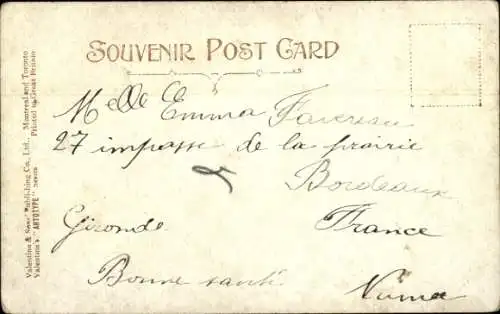 SOUVENIR POST CARD
Melle Emma Favereau
27 impasse de la prairie
Bordeaux
Gironde France
Bonne santé Numa
Valentine & Sons' Publishing Co., Ltd., Montreal and Toronto
Valentine's "ARTOTYPE" Series Printed in Great Britain